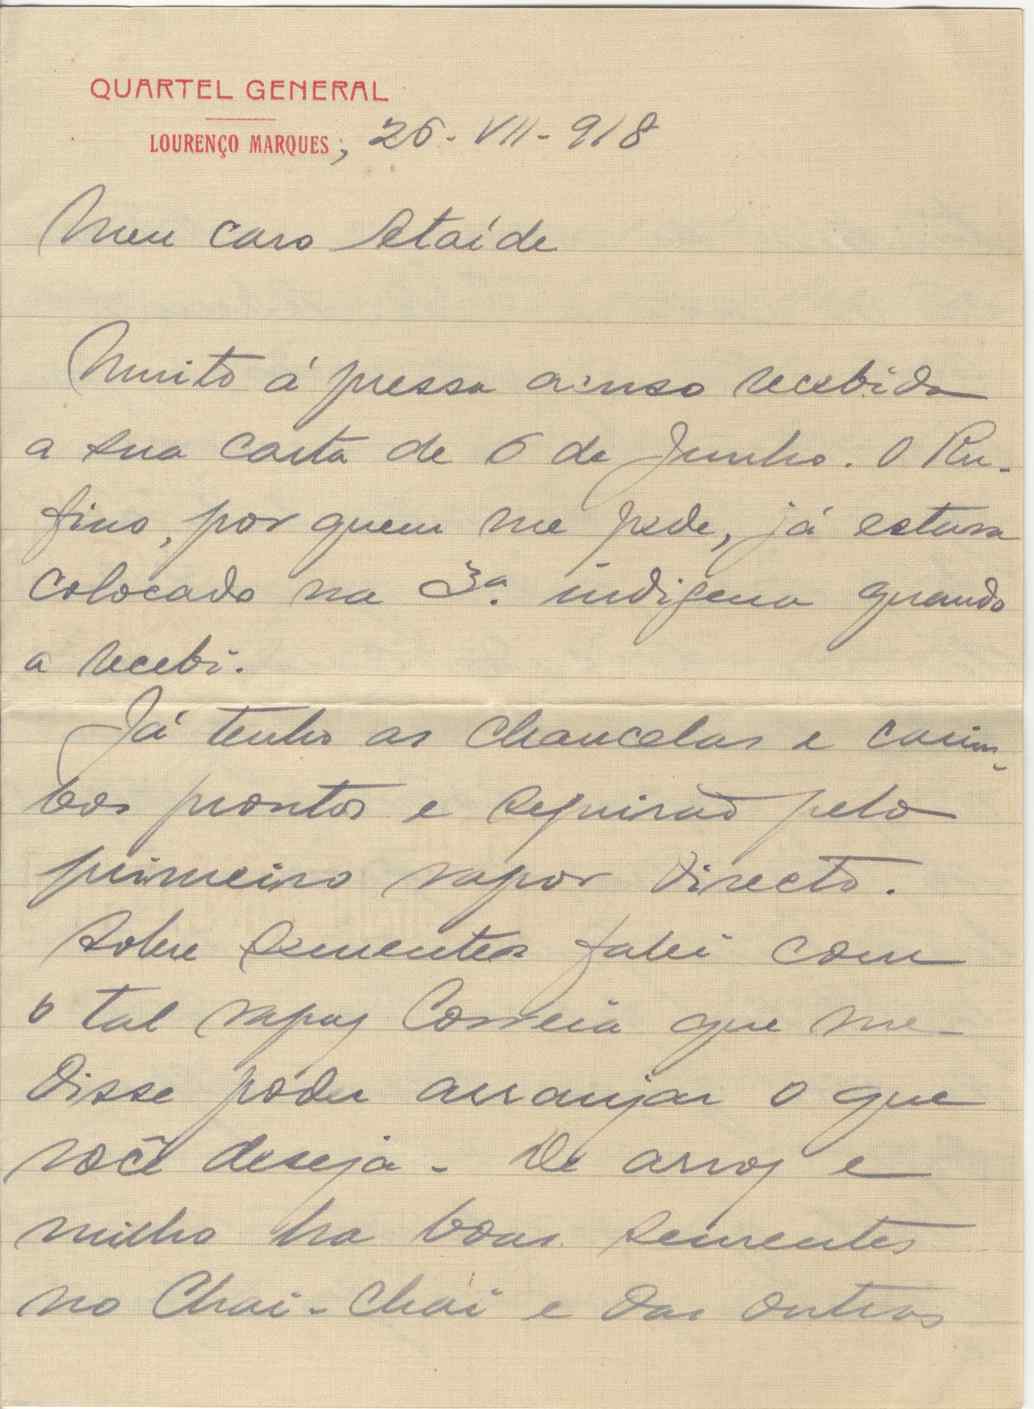 QUARTEL GENERAL
LOURENÇO MARQUES, 26-VII-918
Meu caro Ataíde
Muito á pressa acuso recebida
a sua carta de 6 de Junho. O Ru-
fino, por quem me pede, já estava
colocado na 3ª. indigena quando
a recebi.
Já tenho as chancelas e carim-
bos prontos e seguirão pelo
primeiro vapor directo.
Sobre sementes falei com
o tal rapaz Correia que me
disse poder arranjar o que
você deseja - De arroz e
milho ha boas sementes
no Chai-Chái e das outras